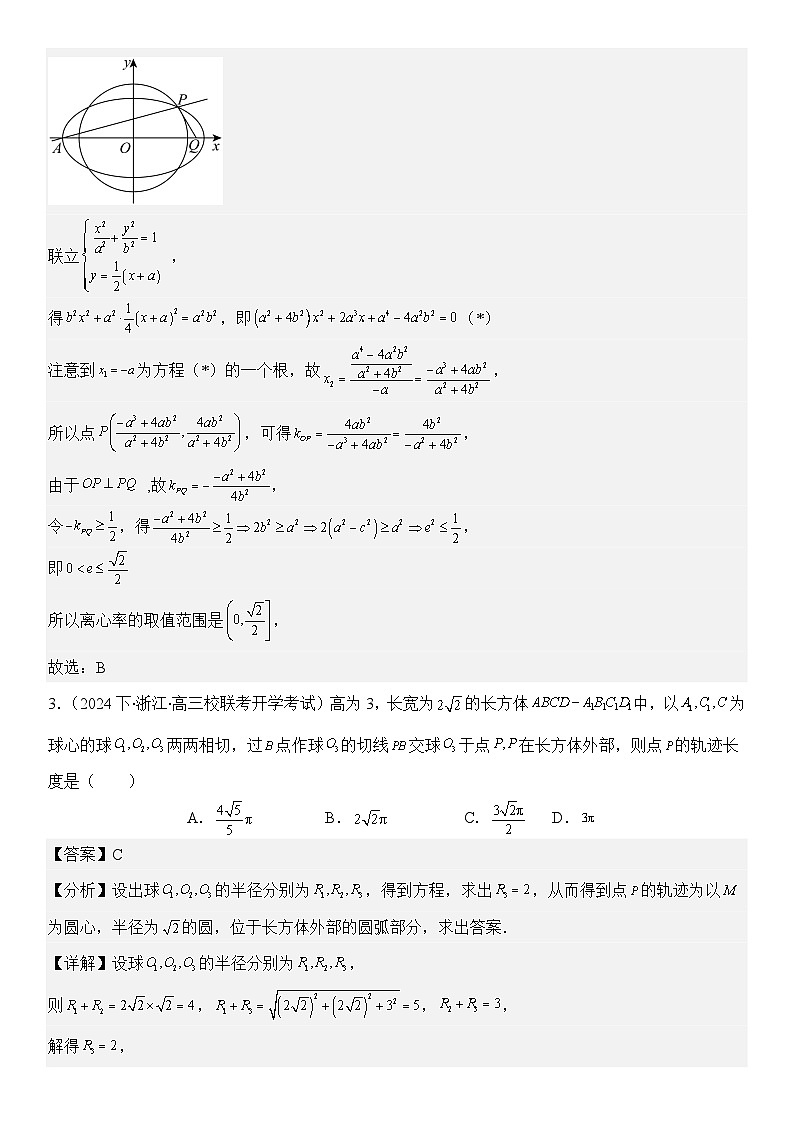 y
P
A
O
Q
x
联立{x²/a²+y²/b²=1, y=1/2(x+a),
得b²x²+a²·1/4(x+a)²=a²b²,即(a²+4b²)x²+2a³x+a⁴-4a²b²=0(*)
注意到x₁=-a为方程(*)的一个根,故x₂=((a⁴-4a²b²)/(a²+4b²))/(-a)=(-a³+4ab²)/(a²+4b²),
所以点P((-a³+4ab²)/(a²+4b²),4ab²/(a²+4b²)),可得k_OP=4ab²/(-a³+4ab²)=4b²/(-a²+4b²),
由于OP⊥PQ ,故k_PQ=-(-a²+4b²)/(4b²),
令-k_PQ≥1/2,得(-a²+4b²)/(4b²)≥1/2⇒2b²≥a²⇒2(a²-c²)≥a²⇒e²≤1/2,
即0<e≤√2/2
所以离心率的取值范围是(0,√2/2],
故选:B
3.(2024下·浙江·高三校联考开学考试)高为3,长宽为2√2的长方体ABCD-A₁B₁C₁D₁中,以A₁,C₁,C为
球心的球O₁,O₂,O₃两两相切,过B点作球O₃的切线PB交球O₃于点P,P在长方体外部,则点P的轨迹长
度是( )
A.4√5/5π B.2√2π C.3√2π/2 D.3π
【答案】C
【分析】设出球O₁,O₂,O₃的半径分别为R₁,R₂,R₃,得到方程,求出R₃=2,从而得到点P的轨迹为以M
为圆心,半径为√2的圆,位于长方体外部的圆弧部分,求出答案.
【详解】设球O₁,O₂,O₃的半径分别为R₁,R₂,R₃,
则R₁+R₂=2√2×√2=4,R₁+R₃=√((2√2)²+(2√2)²+3²)=5,R₂+R₃=3,
解得R₃=2,